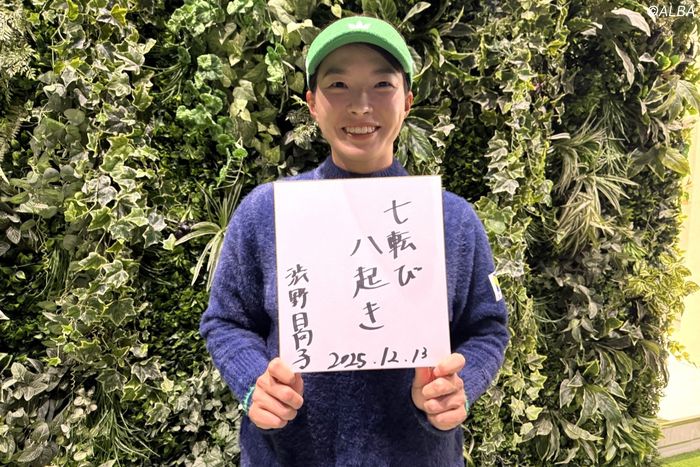 七転び
八起き
渋野日向子
2025.12.13
©ALBA